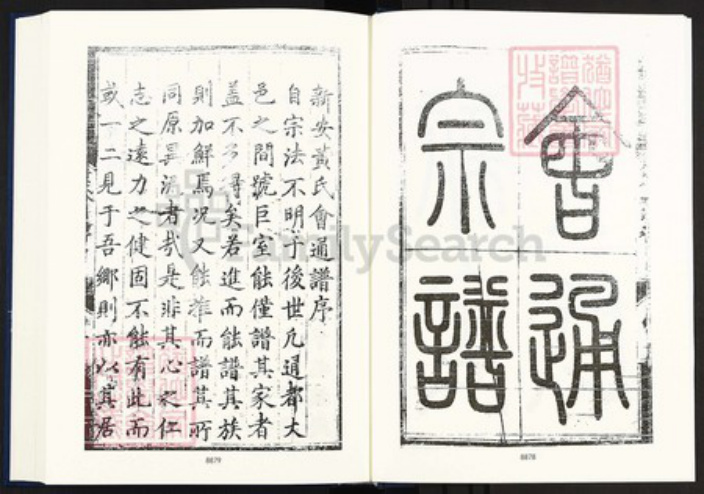 會通
宗譜
新安黃氏會通譜序
自宗法不明于後世凡通都大
邑之間號巨室能僅譜其家者
蓋不多得矣若進而能譜其族
則加鮮焉况又能推而譜其所
同原異派者哉是非其心之仁
志之遠力之健固不能有此而
或一二見于吾鄉則亦以其居
8879
8878
FamilySearch